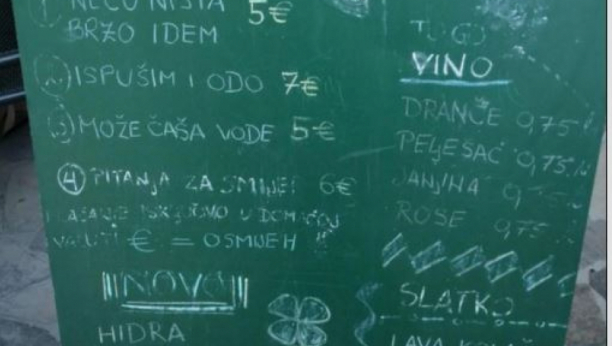 1 NEĆU NIŠTA 5€
BRZO IDEM
2. ISPUŠIM I ODO 7€
3. MOŽE ČAŠA VODE 5€
4 PITANJA ZA SMIJEH 6€
PLAĆANJE ISKLJUČIVO U DOMAĆOJ
VALUTI € = OSMIJEH !!
NOVO
HIDRA
TO GO
VINO
DRANČE 0,75
PELJEŠAC 0,75
JANJINA
ROSE 0,75
SLATKO
LAVA